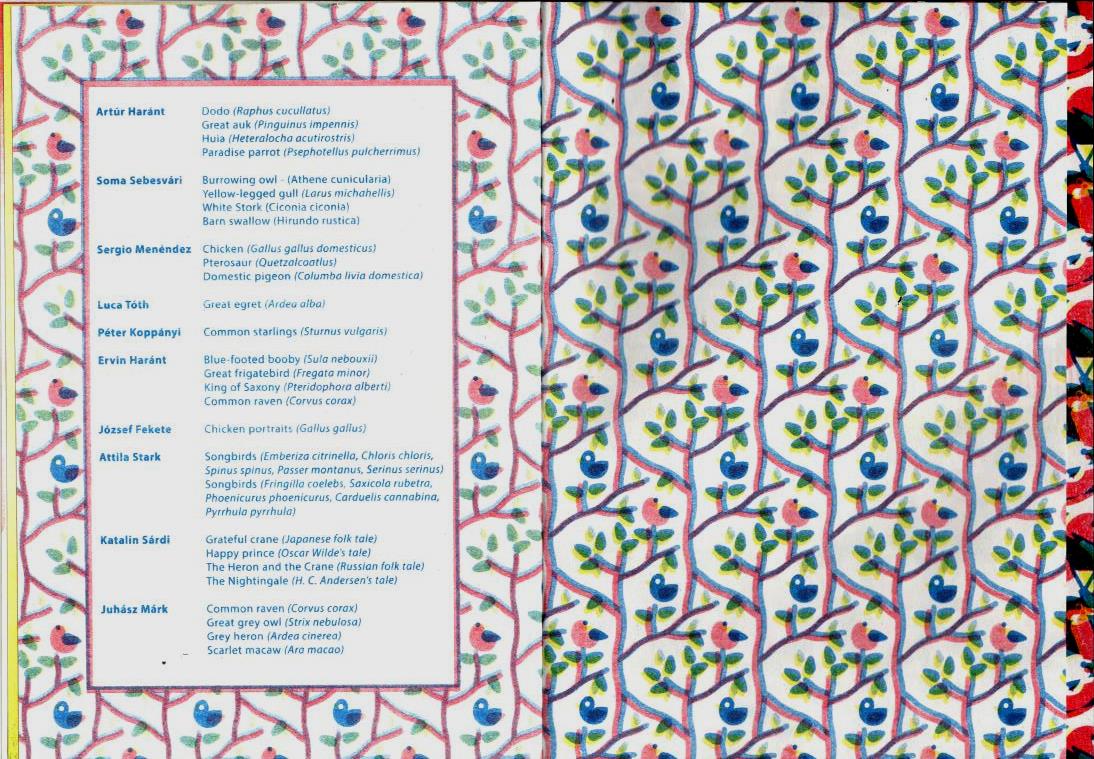 Artúr Haránt Dodo (Raphus cucullatus)
Great auk (Pinguinus impennis)
Huia (Heteralocha acutirostris)
Paradise parrot (Psephotellus pulcherrimus)
Soma Sebesvári Burrowing owl - (Athene cunicularia)
Yellow-legged gull (Larus michahellis)
White Stork (Ciconia ciconia)
Barn swallow (Hirundo rustica)
Sergio Menéndez Chicken (Gallus gallus domesticus)
Pterosaur (Quetzalcoatlus)
Domestic pigeon (Columba livia domestica)
Luca Tóth Great egret (Ardea alba)
Péter Koppányi Common starlings (Sturnus vulgaris)
Ervin Haránt Blue-footed booby (Sula nebouxii)
Great frigatebird (Fregata minor)
King of Saxony (Pteridophora alberti)
Common raven (Corvus corax)
József Fekete Chicken portraits (Gallus gallus)
Attila Stark Songbirds (Emberiza citrinella, Chloris chloris,
Spinus spinus, Passer montanus, Serinus serinus)
Songbirds (Fringilla coelebs, Saxicola rubetra,
Phoenicurus phoenicurus, Carduelis cannabina,
Pyrrhula pyrrhula)
Katalin Sárdi Grateful crane (Japanese folk tale)
Happy prince (Oscar Wilde's tale)
The Heron and the Crane (Russian folk tale)
The Nightingale (H. C. Andersen's tale)
Juhász Márk Common raven (Corvus corax)
Great grey owl (Strix nebulosa)
Grey heron (Ardea cinerea)
Scarlet macaw (Ara macao)